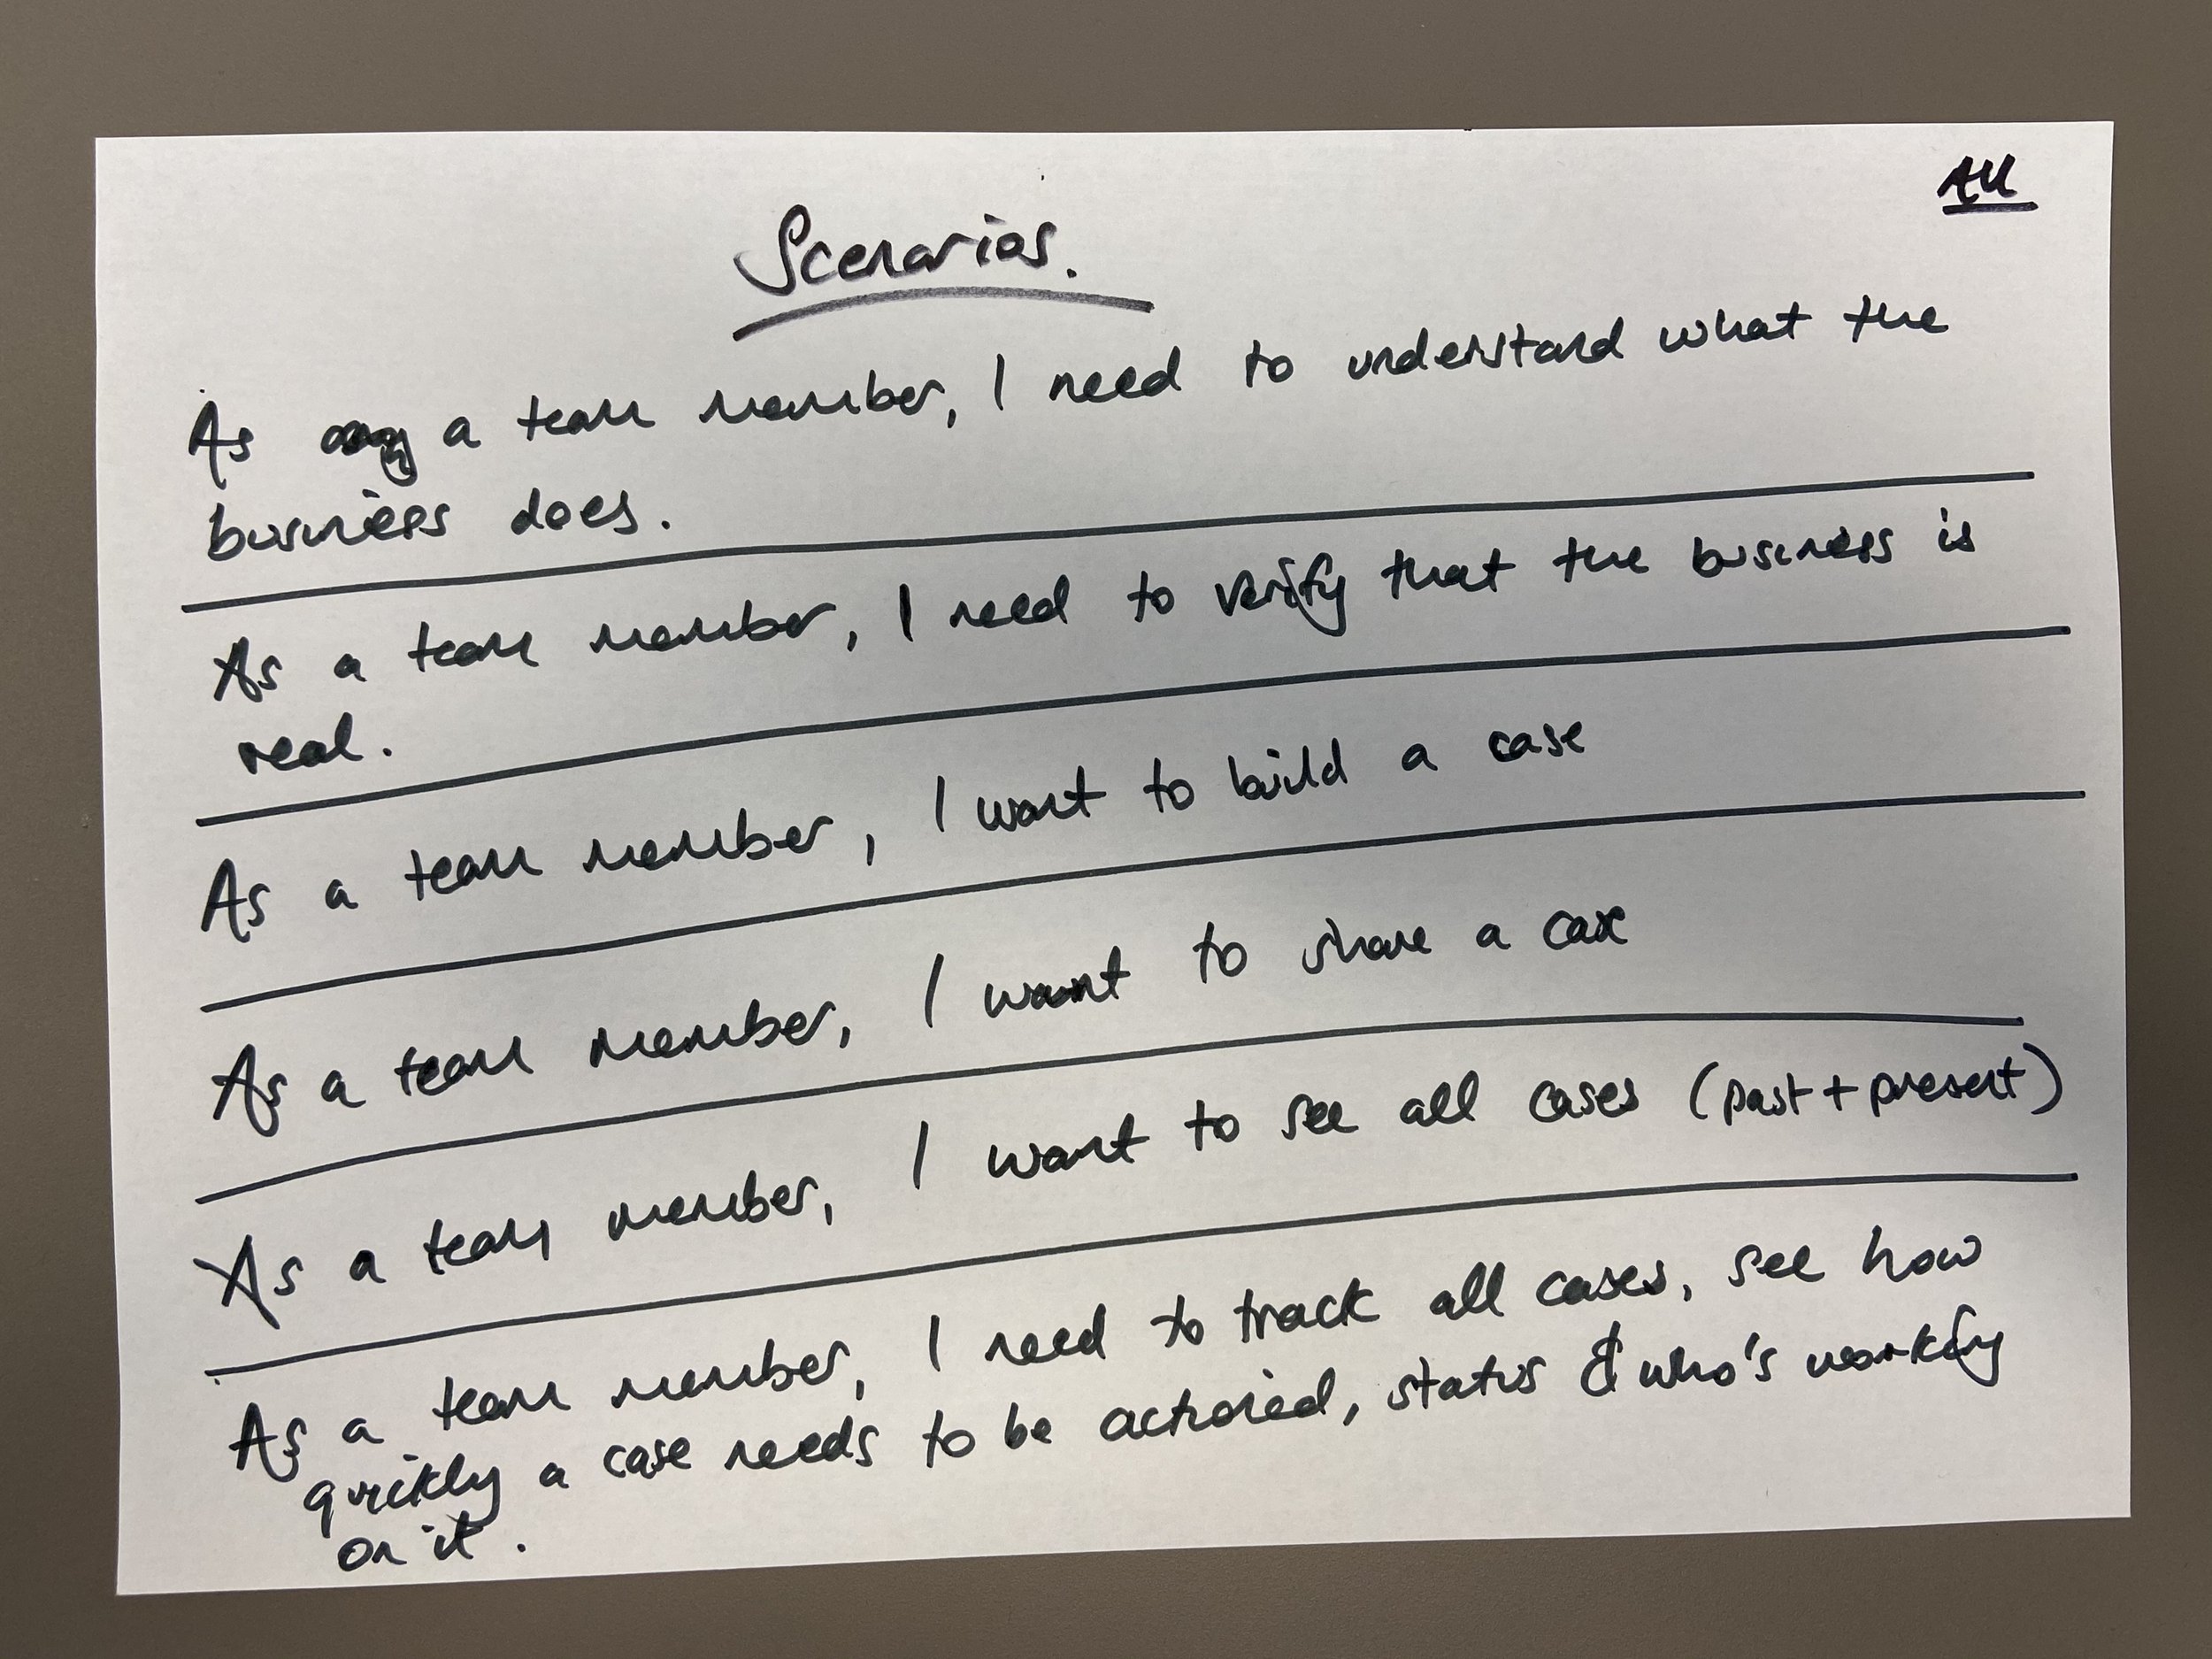 Scenarios.
As a team member, I need to understand what the
business does.
As a team member, I need to verify that the business is
real.
As a team member, I want to build a case
As a team member, I want to share a case
As a team member, I want to see all cases (past + present)
As a team member, I need to track all cases, see how
quickly a case needs to be actioned, status & who's working
on it.